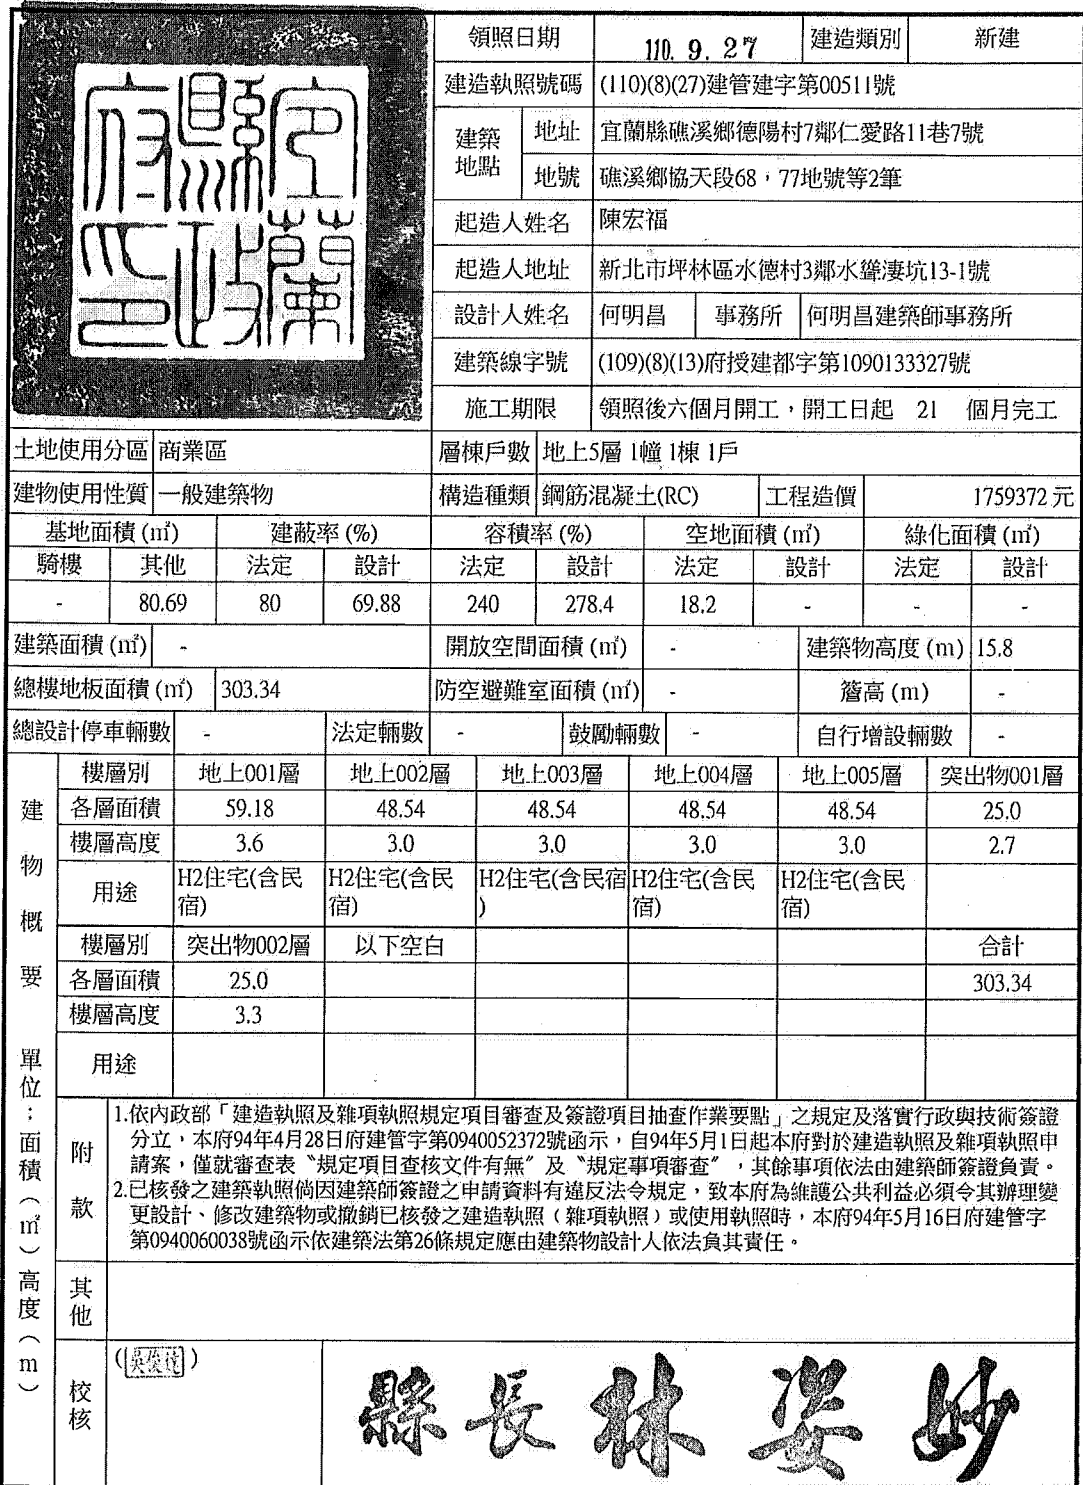 宜蘭縣政府之印
領照日期 110. 9. 27 建造類別 新建
建造執照號碼 (110)(8)(27)建管建字第00511號
建築地點 地址 宜蘭縣礁溪鄉德陽村7鄰仁愛路11巷7號
地號 礁溪鄉協天段68，77地號等2筆
起造人姓名 陳宏福
起造人地址 新北市坪林區水德村3鄰水聳淒坑13-1號
設計人姓名 何明昌 事務所 何明昌建築師事務所
建築線字號 (109)(8)(13)府授建都字第1090133327號
施工期限 領照後六個月開工，開工日起 21 個月完工
土地使用分區 商業區 層棟戶數 地上5層 1幢 1棟 1戶
建物使用性質 一般建築物 構造種類 鋼筋混凝土(RC) 工程造價 1759372 元
基地面積 (㎡) 建蔽率 (%) 容積率 (%) 空地面積 (㎡) 綠化面積 (㎡)
騎樓 其他 法定 設計 法定 設計 法定 設計 法定 設計
- 80.69 80 69.88 240 278.4 18.2 - - -
建築面積 (㎡) - 開放空間面積 (㎡) - 建築物高度 (m) 15.8
總樓地板面積 (㎡) 303.34 防空避難室面積 (㎡) - 簷高 (m) -
總設計停車輛數 - 法定輛數 - 鼓勵輛數 - 自行增設輛數 -
建物概要 單位；面積（㎡）高度（m）
樓層別 地上001層 地上002層 地上003層 地上004層 地上005層 突出物001層
各層面積 59.18 48.54 48.54 48.54 48.54 25.0
樓層高度 3.6 3.0 3.0 3.0 3.0 2.7
用途 H2住宅(含民宿) H2住宅(含民宿) H2住宅(含民宿) H2住宅(含民宿) H2住宅(含民宿)
樓層別 突出物002層 以下空白 合計
各層面積 25.0 303.34
樓層高度 3.3
用途
附款
1.依內政部「建造執照及雜項執照規定項目審查及簽證項目抽查作業要點」之規定及落實行政與技術簽證
分立，本府94年4月28日府建管字第0940052372號函示，自94年5月1日起本府對於建造執照及雜項執照申
請案，僅就審查表〝規定項目查核文件有無〞及〝規定事項審查〞，其餘事項依法由建築師簽證負責。
2.已核發之建築執照倘因建築師簽證之申請資料有違反法令規定，致本府為維護公共利益必須令其辦理變
更設計、修改建築物或撤銷已核發之建造執照（雜項執照）或使用執照時，本府94年5月16日府建管字
第0940060038號函示依建築法第26條規定應由建築物設計人依法負其責任。
其他
校核 ( )
縣長林姿妙